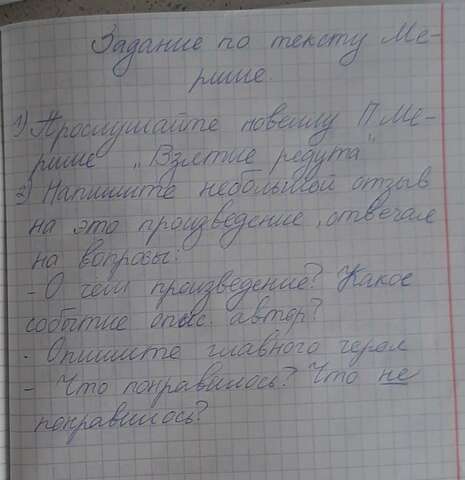 Задание по тексту Ме-
риме.
1) Прослушайте новеллу П. Ме-
риме „Взятие редута"
2) Напишите небольшой отзыв
на это произведение, отвечая
на вопросы:
- О чем произведение? Какое
событие опис. автор?
- Опишите главного героя
- Что понравилось? Что не
понравилось?